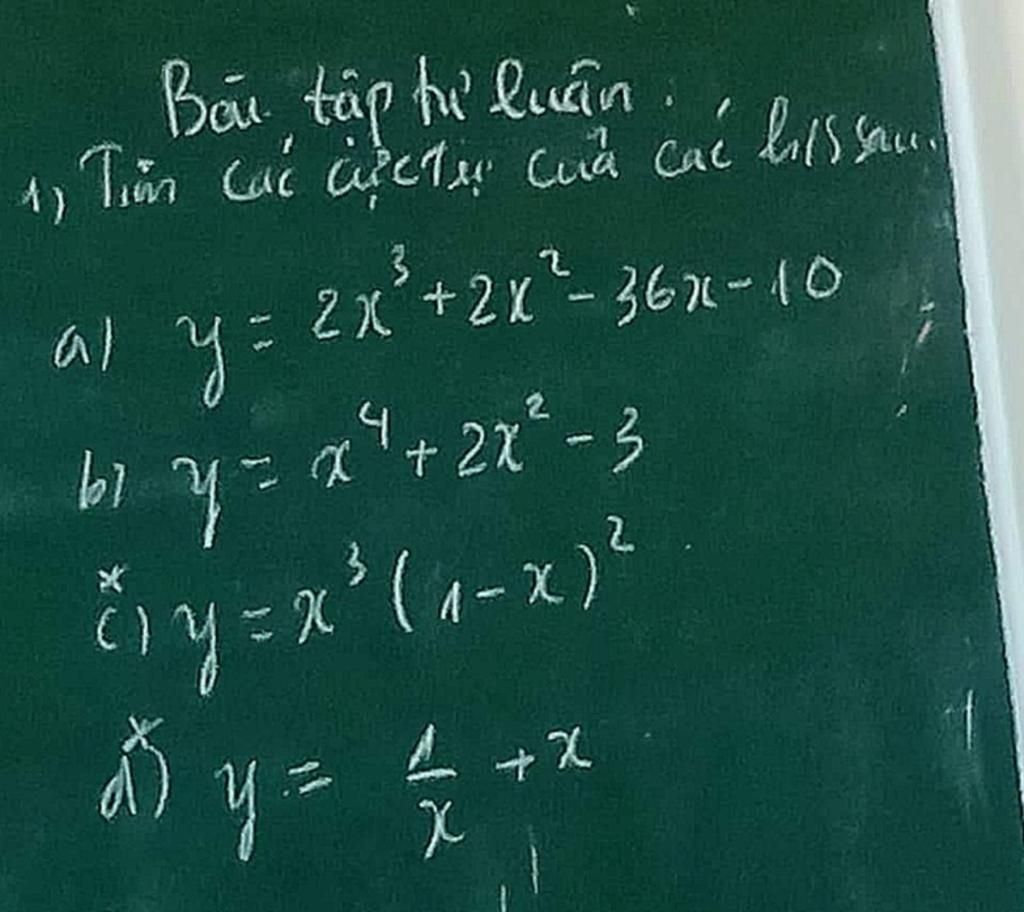 Bài tập tự luận.
1) Tìm các cực trị của các h/s sau.
a) y = 2x³ + 2x² - 36x - 10
b) y = x⁴ + 2x² - 3
*c) y = x³ (1 - x)²
*d) y = 1/x + x